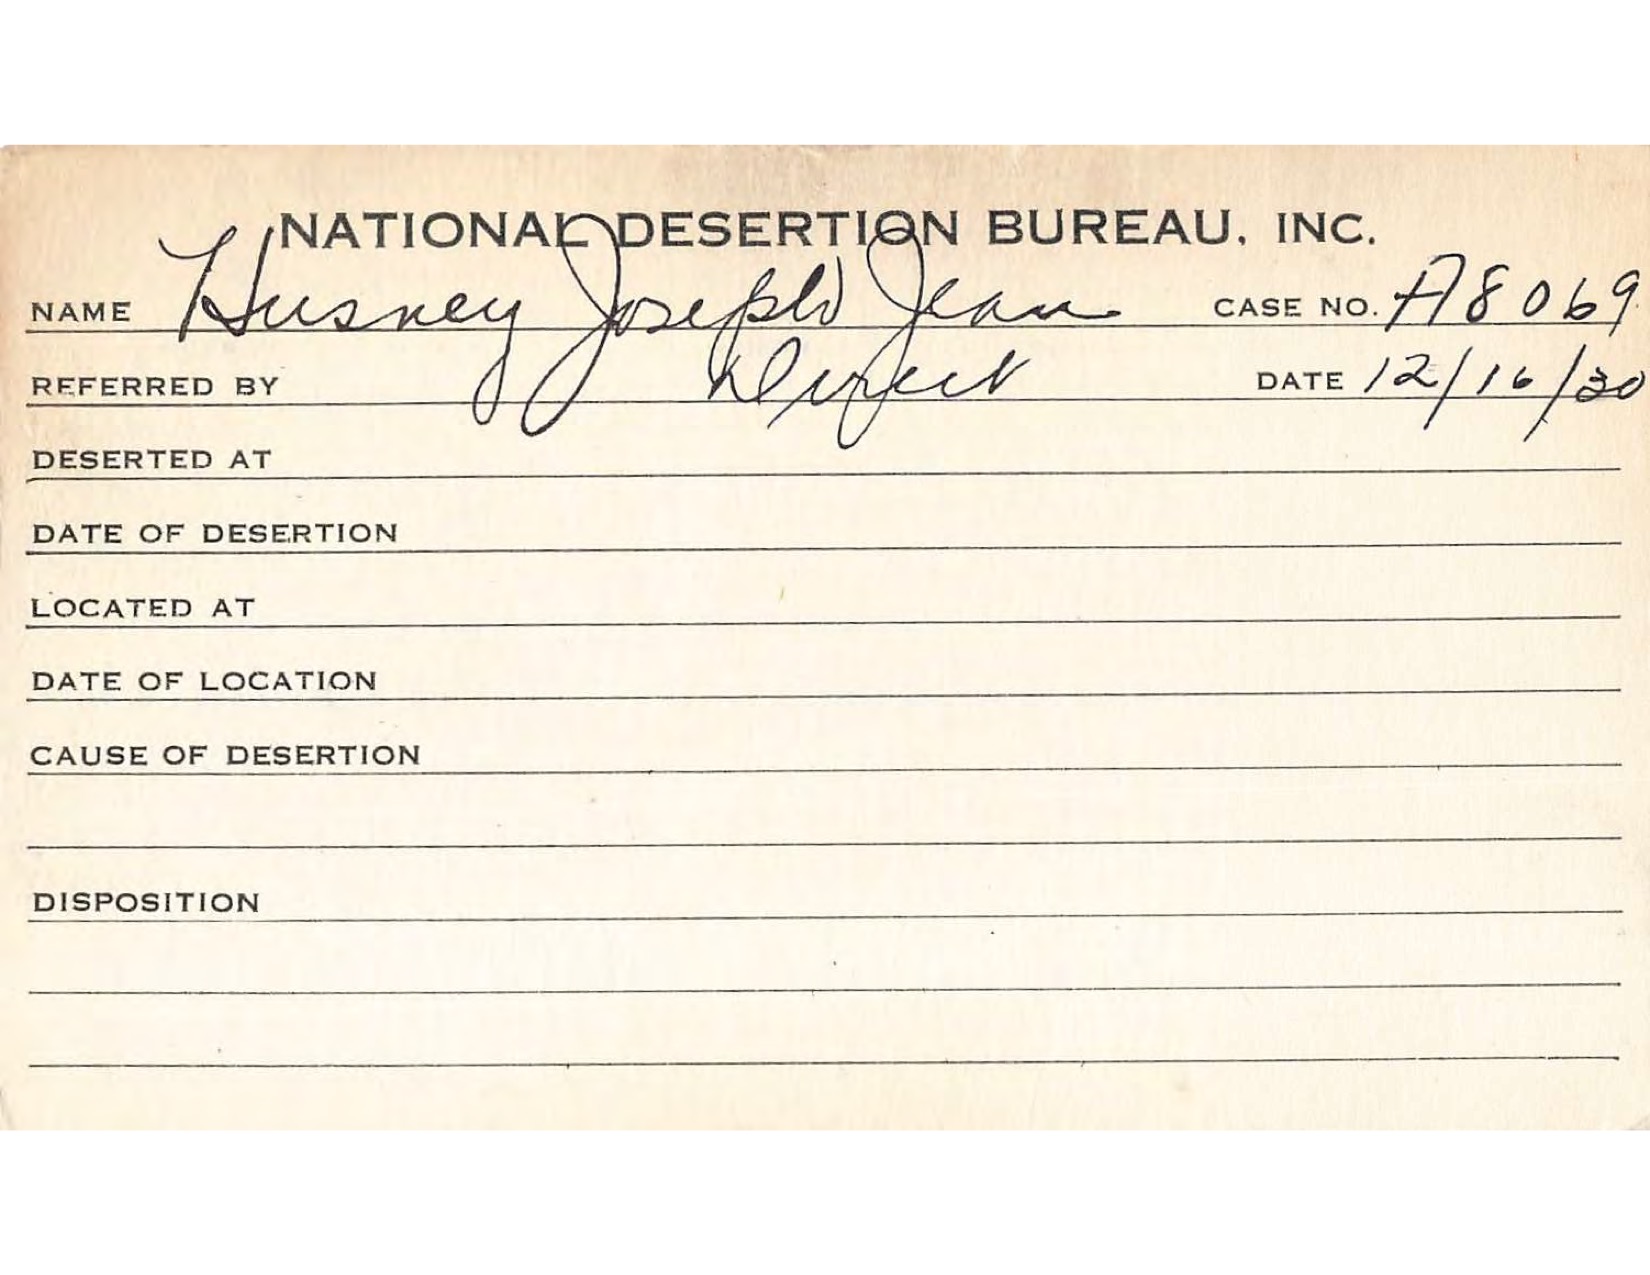 NATIONAL DESERTION BUREAU, INC.
NAME Husney Joseph Jean CASE NO. A8069
REFERRED BY Direct DATE 12/16/30
DESERTED AT
DATE OF DESERTION
LOCATED AT
DATE OF LOCATION
CAUSE OF DESERTION
DISPOSITION